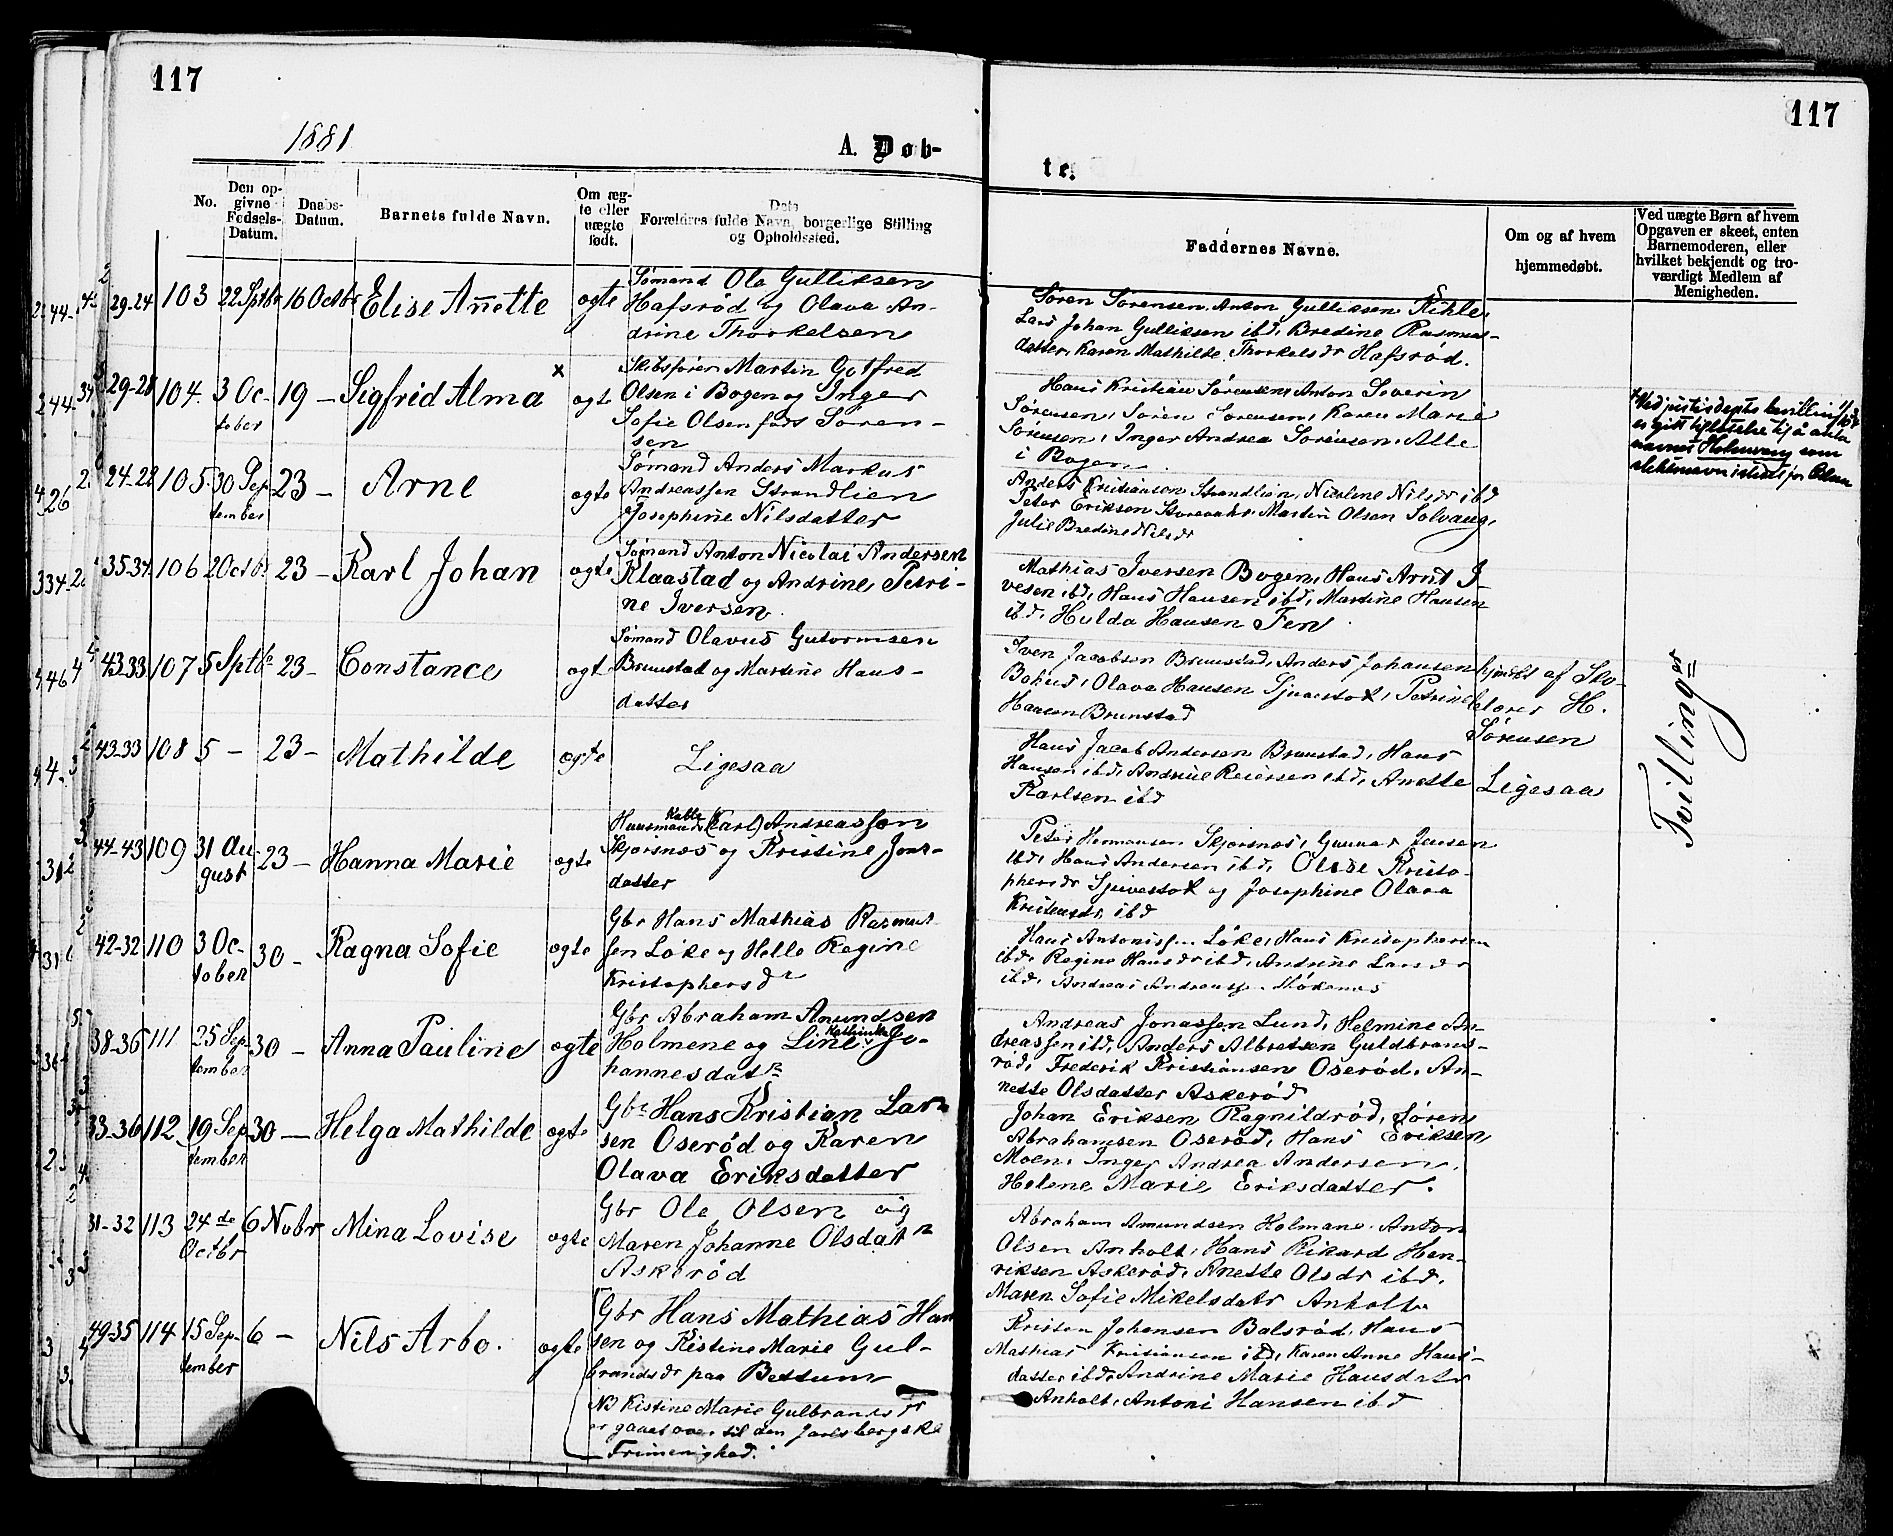 117
117
1881
A. Døb-
te.
No.
Den op-
givne
Fødsels-
Datum.
Daabs-
Datum.
Barnets fulde Navn.
Om æg-
te eller
uægte
født.
Forældres fulde Navn, borgerlige Stilling
og Opholdssted.
Faddernes Navne.
Om og af hvem
hjemmedøbt.
Ved uægte Børn af hvem
Opgaven er skeet, enten
Barnemoderen, eller
hvilket bekjendt og tro-
værdigt Medlem af
Menigheden.
29-24 103 22 Septbr 16 Octbr Elise Anette ægte
Sømand Ole Gulliksen
Hafsrød og Olava An-
drine Thorkelsen
Søren Sørensen, Anton Gulliksen Kihle,
Lars Johan Gulliksen ibd, Bredine Rasmus-
datter, Karen Mathilde Thorkelsdr Hafsrød.
29-28 104. 3 Oc-
tober 19 - Sigfrid Alma x ægte
Skibsfører Martin Gotfred
Olsen i Bogen og Inger
Sofie Olsenføds Søren-
sen
Hans Kristian Sørensen, Anton Severin
Sørensen, Søren Sørensen, Karen Marie
Sørensen, Inger Andrea Sørensen, Alle
i Bogen
navnet Holmvang som
24-28 105 30 Sep
tember 23 - Arne ægte
Sømand Anders Markus
Andreassen Strandlien
Josephine Nilsdatter
Anders Kristiansen Strandlien, Nicoline Nilsdr ibd
Peter Eriksen, Martin Olsen Solvang,
Julie Bredine Nilsdr
35-34 106 2 Octbr 23 - Karl Johan ægte
Sømand Anton Nicolai Andersen
Klaastad og Andrine Petri-
ne Iversen
Mathias Iversen Bogen, Hans Arnt I-
vesen ibd, Hans Hansen ibd, Martine Hansen
ibd, Hulda Hansen Fen
43-33 107 5 Septbr 23 - Constance ægt
Sømand Olavus Gutormsen
Brunstad og Martine Hans-
datter
Iver Jacobsen Brunstad, Anders Johansen
Olava Hansen, Petrine
Hansen Brunstad
hjmdbt af Sko-
lærer H.
Sørensen
43-33 108 5 - 23 - Mathilde ægte
Ligesaa
Hans Jacob Andersen Brunstad, Hans
Hansen ibd, Andrine Reiersen ibd, Anette
Karlsen ibd
Ligesaa
Tvillinger
44-43 109 31 Au
gust 23 - Hanna Marie ægte
Huusmand (Karl) Andreassen
Skjærsnæs og Kristine Jons-
datter
Peter Hermansen Skjærsnæs, Gunnar Jensen
ibd, Hans Andersen ibd, Olise Kristo-
phersdr og Josephine Olava
Kristensdr ibd
42-32 110 3 Oc-
tober 30 - Ragna Sofie ægte
Gbr Hans Mathias Rasmus-
sen Løke og Helle Regine
Kristophersdr
Hans Antonissen Løke, Hans Kristophersen
ibd, Regine Hansdr ibd, Andrine Larsdr
ibd, Andreas
38-36 111 25 Sep
tember 30 - Anna Pauline ægte
Gbr Abraham Amundsen
Holmene og Line Kathinka Jo-
hannesdatr
Andreas Jonassen Lund, Helmine An-
dreassen ibd, Anders Albretsen Guldbrans-
rød, Frederik Kristiansen Oserød, An-
nette Olsdatter Askerød
33-36 112 19 Sep
tember 30 - Helga Mathilde ægte
Gbr Hans Kristian Lar-
sen Oserød og Karen
Olava Eriksdatter
Johan Eriksen Ragnildrød, Søren
Abrahamsen Oserød, Hans Eriksen
Moen, Inger Andrea Andersen,
Helene Marie Eriksdatter.
31-32 113 24de
Octbr 6 Novbr Mina Lovise ægte
Gbr Ole Olsen og
Maren Johanne Olsdattr
Askerød
Abraham Amundsen Holmane, Anton
Olsen Anholt, Hans Rikard Hen-
riksen Askerød, Anette Olsdr ibd,
Maren Sofie Mikelsdatr Anholt
49-35 114 15 Sep-
tember 6 - Nils Arbo. ægte
Gbr Hans Mathias Han
sen og Kistine Marie Gul-
brandsdr paa Bettum
Kristen Johansen Balsrød, Hans
Mathias Kristiansen ibd, Karen Anne Hans-
datter ibd, Andrine Marie Hansdatr
Anholt, Antoni Hansen ibd
NB Kistine Marie Gulbrandsdr
er gaaet over til den Jarlsbergske
Frimenighed.